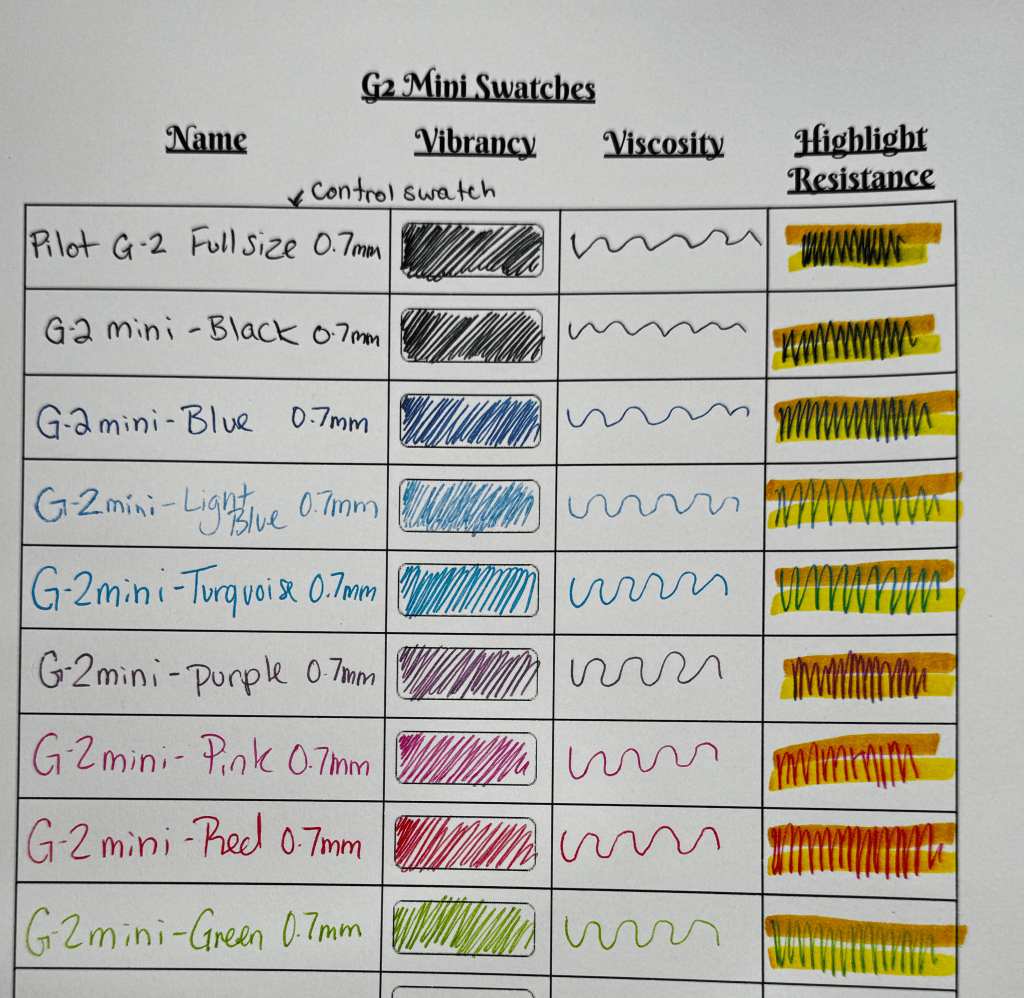 G2 Mini Swatches
Name Vibrancy Viscosity Highlight Resistance
Control swatch
Pilot G-2 Full size 0.7mm
G-2 mini - Black 0.7mm
G-2 mini - Blue 0.7mm
G-2 mini - Light Blue 0.7mm
G-2 mini - Turquoise 0.7mm
G-2 mini - purple 0.7mm
G-2 mini - Pink 0.7mm
G-2 mini - Red 0.7mm
G-2 mini - Green 0.7mm